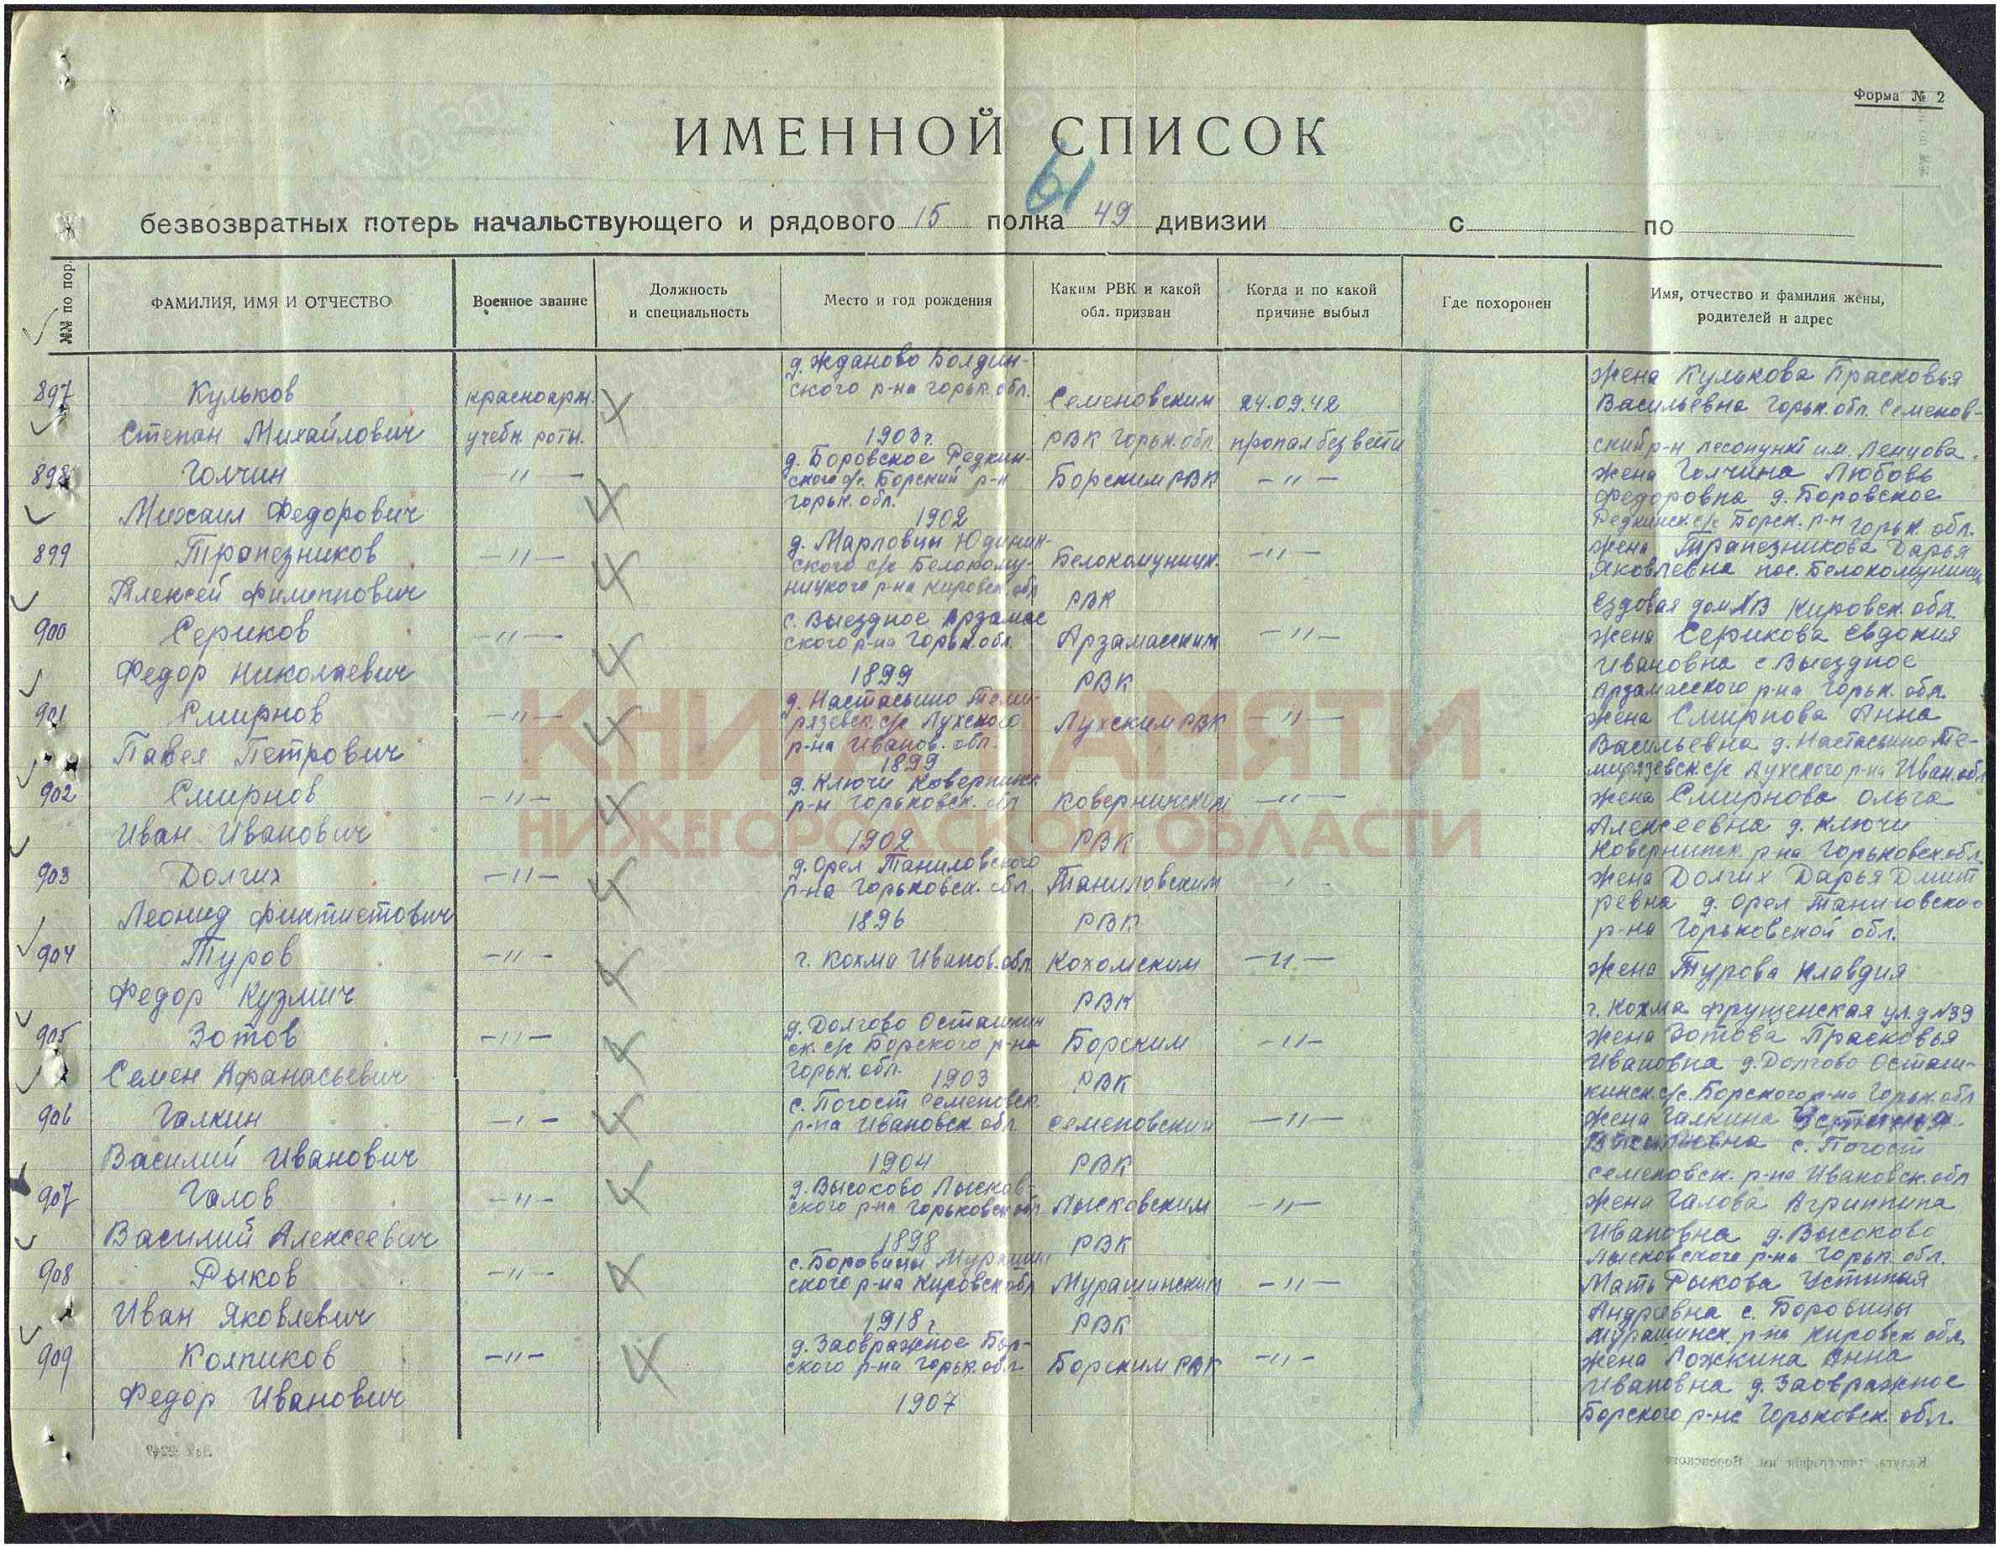 Форма № 2
ИМЕННОЙ СПИСОК
61
безвозвратных потерь начальствующего и рядового 15 полка 49 дивизии с по
№№ по пор.
ФАМИЛИЯ, ИМЯ И ОТЧЕСТВО
Военное звание
Должность
и специальность
Место и год рождения
Каким РВК и какой
обл. призван
Когда и по какой
причине выбыл
Где похоронен
Имя, отчество и фамилия жены,
родителей и адрес
897
Кульков
Степан Михайлович
красноарм.
учебн. роты.
д. Жданово Болдин-
ского р-на горьк. обл.
1903 г.
Семеновским
РВК Горьк. обл.
24.09.42
пропал без вести
жена Кулькова Прасковья
Васильевна Горьк. обл. Семенов-
ский р-н лесопункт им.
898
Голчин
Михаил Федорович
-"-
д. Боровское Редкин-
ского с/с. Борский р-н
горьк. обл.
1902
Борским РВК
-"-
жена Голчина Любовь
Федоровна д. Боровское
Редкинск. с/с Борск. р-н Горьк. обл.
899
Трапезников
Алексей Филиппович
-"-
д. Марловцы
ского с/с Белохолу-
ницкого р-на Кировск. обл
РВК
-"-
жена Трапезникова Дарья
Яковлевна пос.
Ездовая дом Кировск. обл.
900
Сериков
Федор Николаевич
-"-
с. Выездное Арзамас
ского р-на Горьк. обл.
1899
Арзамасским
РВК
-"-
жена Серикова Евдокия
Ивановна с Выездное
Арзамасского р-на Горьк. обл.
901
Смирнов
Павел Петрович
-"-
д. Настасьино Теми-
рязевск. с/с Лухского
р-на Иванов. обл.
1899
Лухским РВК
-"-
жена Смирнова Анна
Васильевна д. Настасьино Те-
мирязевск с/с Лухского р-на Иван. обл
902
Смирнов
Иван Иванович
-"-
д. Ключи Ковернинск
р-н Горьковск. обл
1902
Ковернинским
РВК
-"-
жена Смирнова Ольга
Алексеевна д. Ключи
Ковернинск. р-на Горьковск обл.
903
Долгих
Леонид Фиктистович
-"-
д. Орел Таниловского
р-на Горьковск. обл.
1896
Таниловским
РВК
жена Долгих Дарья Дмит
ревна д. Орел
р-на Горьковской обл.
904
Туров
Федор Кузмич
-"-
г. Кохма Иванов. обл
Кохомским
РВК
-"-
жена Турова Клавдия
г. Кохма Фрунзенская ул. д № 39
905
Зотов
Семен Афанасьевич
-"-
д. Долгово Осташкин
ск. с/с Борского р-на
Горьк. обл.
1903
Борским
РВК
-"-
жена Зотова Прасковья
Ивановна д. Долгово Осташ-
кинск. с/с. Борского р-на Горьк. обл
906
Галкин
Василий Иванович
-"-
с. Погост Семеновск.
р-на Ивановск обл
1904
Семеновским
РВК
-"-
жена Галкина
с. Погост
Семеновск. р-на Ивановск. обл
907
Галов
Василий Алексеевич
-"-
д. Высоково Лысков-
ского р-на Горьковск обл
1898
Лысковским
РВК
-"-
жена Галова Агриппина
Ивановна д. Высоково
Лысковского р-на Горьк. обл.
908
Рыков
Иван Яковлевич
-"-
с. Боровицы Мурашин
ского р-на Кировск обл
1918 г.
Мурашинским
РВК
-"-
Мать Рыкова Устинья
Андревна с. Боровицы
Мурашинск. р-на Кировск. обл.
909
Колпиков
Федор Иванович
-"-
д. Заовражное Бор-
ского р-на Горьк. обл
1907
Борским РВК
-"-
жена Ложкина Анна
Ивановна д. Заовражное
Борского р-на Горьковск. обл.
КНИГА ПАМЯТИ
НИЖЕГОРОДСКОЙ ОБЛАСТИ